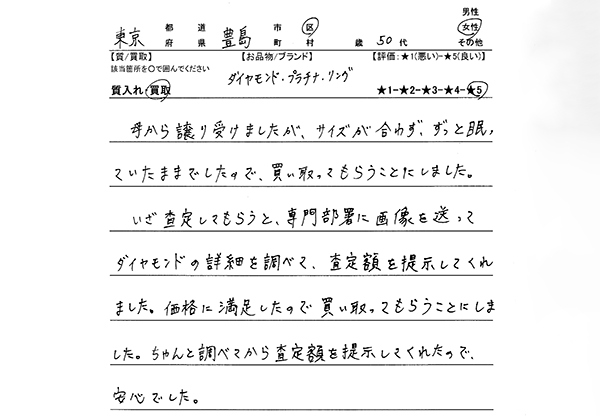 男性
東京 都道府県 豊島 市区町村 歳 50代 女性
その他
【質/買取】 【お品物/ブランド】 【評価：★1(悪い)-★5(良い)】
該当箇所を〇で囲んでください
ダイヤモンド・プラチナ・リング
質入れ・買取 ★1-★2-★3-★4-★5
母から譲り受けましたが、サイズが合わず、ずっと眠っ
ていたままでしたので、買い取ってもらうことにしました。
いざ査定してもらうと、専門部署に画像を送って
ダイヤモンドの詳細を調べて、査定額を提示してくれ
ました。価格に満足したので買い取ってもらうことにしま
した。ちゃんと調べてから査定額を提示してくれたので、
安心でした。